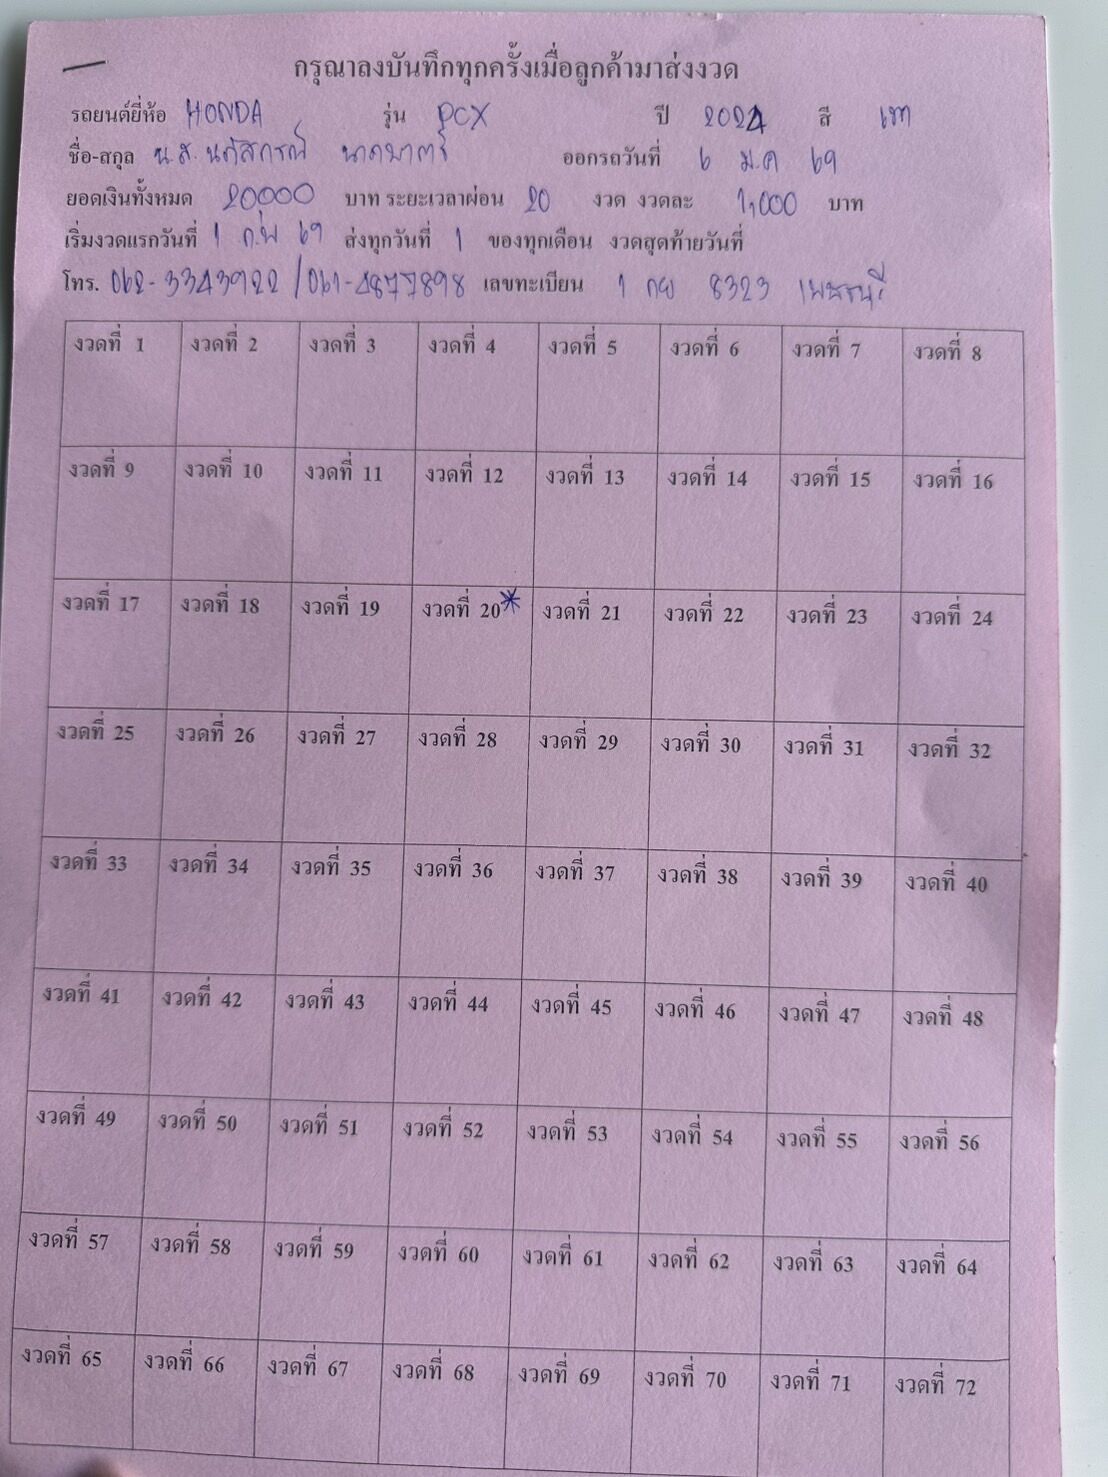 กรุณาลงบันทึกทุกครั้งเมื่อลูกค้ามาส่งงวด
รถยนต์ยี่ห้อ HONDA รุ่น PCX ปี 2024 สี เทา
ชื่อ-สกุล น.ส. ออกรถวันที่ 6 ม.ค 69
ยอดเงินทั้งหมด 20000 บาท ระยะเวลาผ่อน 20 งวด งวดละ 1,000 บาท
เริ่มงวดแรกวันที่ 1 ก.พ 69 ส่งทุกวันที่ 1 ของทุกเดือน งวดสุดท้ายวันที่
โทร. 062-3343922 /061-4877898 เลขทะเบียน 1 กย 8323
งวดที่ 1 งวดที่ 2 งวดที่ 3 งวดที่ 4 งวดที่ 5 งวดที่ 6 งวดที่ 7 งวดที่ 8
งวดที่ 9 งวดที่ 10 งวดที่ 11 งวดที่ 12 งวดที่ 13 งวดที่ 14 งวดที่ 15 งวดที่ 16
งวดที่ 17 งวดที่ 18 งวดที่ 19 งวดที่ 20* งวดที่ 21 งวดที่ 22 งวดที่ 23 งวดที่ 24
งวดที่ 25 งวดที่ 26 งวดที่ 27 งวดที่ 28 งวดที่ 29 งวดที่ 30 งวดที่ 31 งวดที่ 32
งวดที่ 33 งวดที่ 34 งวดที่ 35 งวดที่ 36 งวดที่ 37 งวดที่ 38 งวดที่ 39 งวดที่ 40
งวดที่ 41 งวดที่ 42 งวดที่ 43 งวดที่ 44 งวดที่ 45 งวดที่ 46 งวดที่ 47 งวดที่ 48
งวดที่ 49 งวดที่ 50 งวดที่ 51 งวดที่ 52 งวดที่ 53 งวดที่ 54 งวดที่ 55 งวดที่ 56
งวดที่ 57 งวดที่ 58 งวดที่ 59 งวดที่ 60 งวดที่ 61 งวดที่ 62 งวดที่ 63 งวดที่ 64
งวดที่ 65 งวดที่ 66 งวดที่ 67 งวดที่ 68 งวดที่ 69 งวดที่ 70 งวดที่ 71 งวดที่ 72